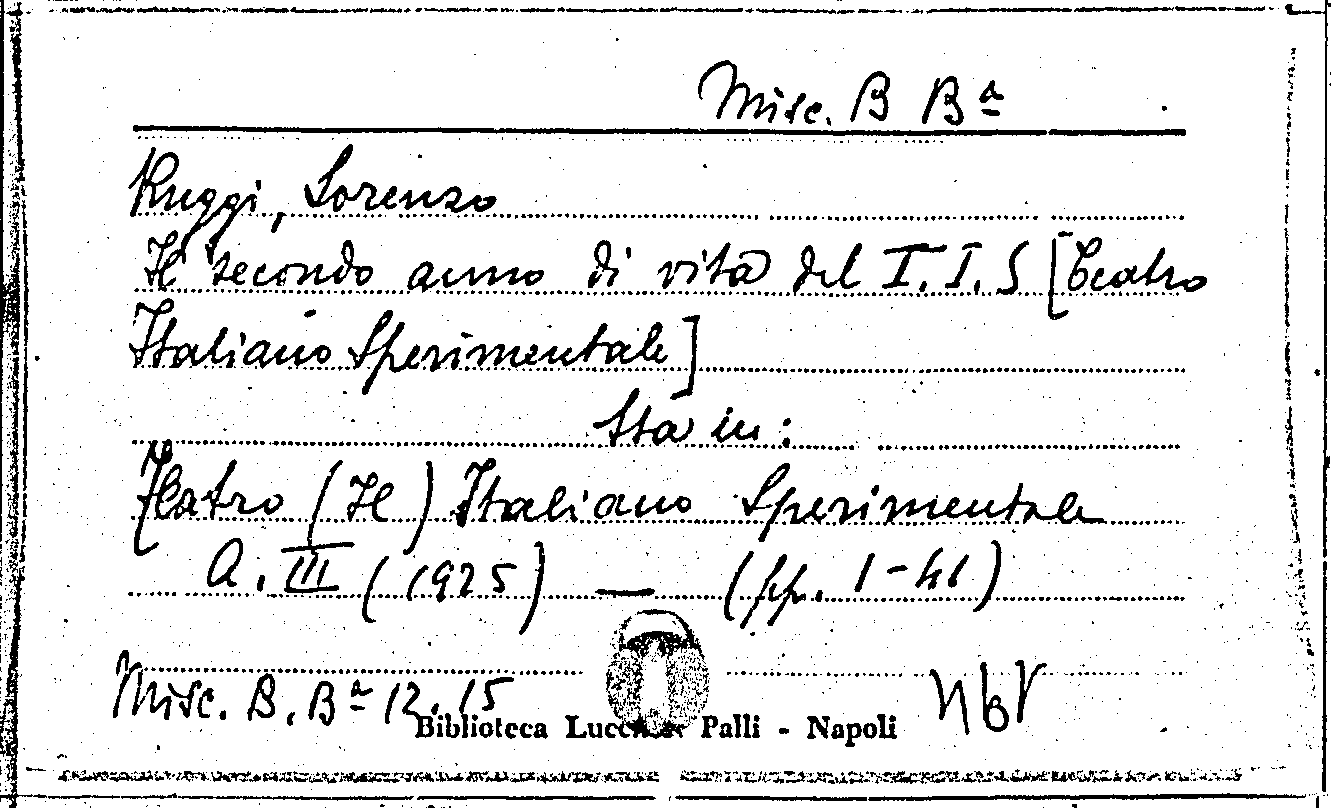 Misc. B Bª
Ruggi, Lorenzo
Il secondo anno di vita del T.I.S [Teatro
Italiano Sperimentale]
Sta in:
Teatro (Il) Italiano Sperimentale
A. III (1925) — (pp. 1-41)
Misc. B. Bª 12. 15
Biblioteca Lucchesi Palli - Napoli